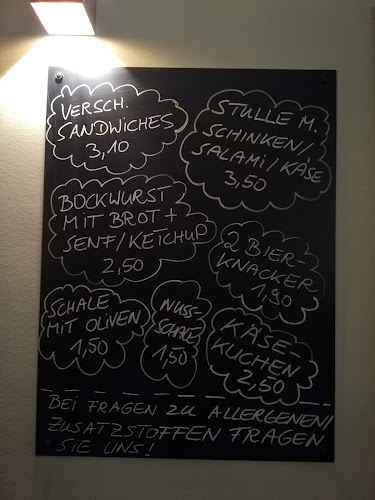 VERSCH.
SANDWICHES
3,10
STULLE M.
SCHINKEN/
SALAMI/KÄSE
3,50
BOCKWURST
MIT BROT +
SENF/KETCHUP
2,50
2 BIER-
KNACKER
1,90
SCHALE
MIT OLIVEN
1,50
NUSS-
SCHALE
1,50
KÄSE-
KUCHEN
2,50
BEI FRAGEN ZU ALLERGENEN/
ZUSATZSTOFFEN FRAGEN
SIE UNS!